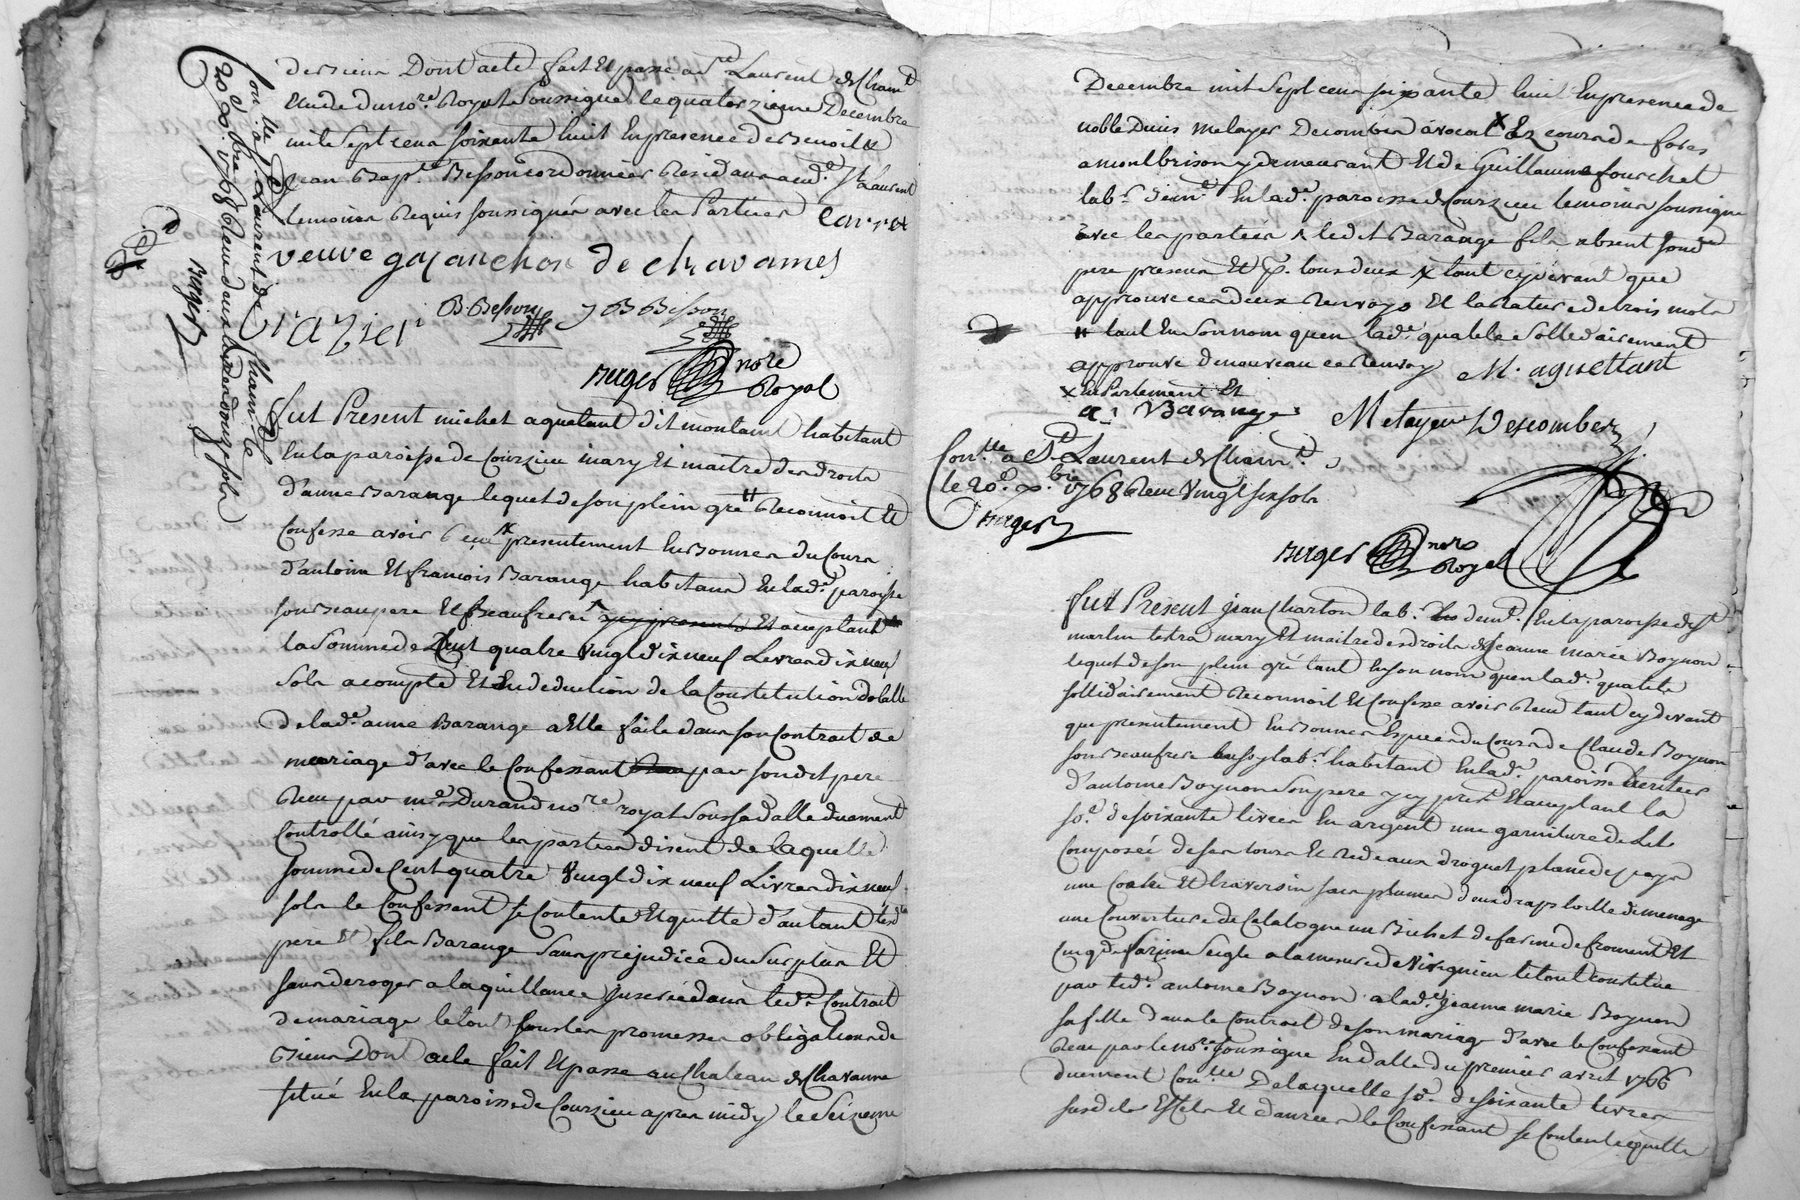 des siens Dont acte fait Et passé a St Laurent de Cham.t
Etude du no.re Royal Soussigné le quatorzieme Decembre
mil Sept cens soixante huit En presence de Benoit &
Jean Bap.te Besson cordonniers Residans aud. St Laurent
temoins Requis soussignés avec les Parties
veuve gajanchon de chavannes
Crazier B. Besson J B Besson
Berger no.re Royal
Con.lle a St Laurent de Cham.t le
20 x.bre 1768 Reçu
Berger
fut Present michel aguetant dit montaint habitant
En la paroisse de Courzieu mary Et maitre des droits
d'anne Barange lequel de son plein gré # Reconnoit Et
Confesse avoir Reçu x presentement En Bonnes du Cours
d'antoine Et francois Barange habitans En lad. paroisse
son Beaupere Et Beaufrere icy presents Et acceptant
la Somme de Cent quatre Vingt dix neuf Livres dix neuf
Sols a compte Et En deduction de la Constitution dotalle
de lad.e anne Barange a Elle faite dans son Contrat de
mariage d'avec le Confessant par sondit pere
Reçu par m.e Durand no.re royal Soussa datte duement
Controllé ainsy que les parties disent de laquelle
somme de Cent quatre Vingt dix neuf Livres dix neuf
sols le Confessant se Contente Et quitte d'autant lesd.
pere Et fils Barange Sans prejudice du Surplus Et
sans deroger a la quittance Inserée dans led. Contrat
de mariage le tout sous les promesses obligations de
Biens Dont acte fait Et passé au Chateau de Chavanne
situé En la paroisse de Courzieu apres midy le Seizieme
Decembre mil Sept cens soixante huit En presence de
noble Denis metayer Decombes avocat x Ez cours de fores
a montbrison y demeurant Et de Guillaume fourchet
lab.r dem.t En lad.e paroisse de Courzieu temoins soussignés
avec les parties ledit Barange fils absent sond.
pere present Et p. tous deux x tant cy devant que
approuve ces deux Renvoys Et la Rature de trois mots
# tant En son nom qu'en lad.e qualité sollidairement
approuve de nouveau ce Renvoy M. aguettant
x En Parlement Et
a. Barange Metayer Descombes
Con.lle a St Laurent de Cham.t
le 20.e x.bre 1768 Reçu Vingt six sols
Berger
Berger no.re Royal
fut Present jean Charton lab.r dem.t En la paroisse de St
martin lestra mary Et maitre des droits de Jeanne marie Boynon
lequel de son plein gré tant En son nom qu'en lad.e qualité
sollidairement Reconnoit Et Confesse avoir Reçu tant cy devant
que presentement En Bonnes Especes du Cours de Claude Boynon
son Beaufrere aussy lab.r habitant En lad.e paroisse heritier
d'antoine Boynon Son pere icy pres.t Et acceptant la
so.e de soixante livres En argent une garniture de Lit
Composée de ses tours Et Rideaux droguet plane de pays
une Coaitre Et traversin sans plumes deux draps toille de menage
une Couverture de Catalogne un Bichet de farine de froment Et
cinq de farine Seigle a la mesure de Virignieu le tout constitué
par led. antoine Boynon a lad.e Jeanne marie Boynon
sa fille dans le Contrat de son mariage d'avec le Confessant
Reçu par le no.re soussigné En datte du premier avril 1766
duement Con.lle De laquelle so.e de soixante livres
susdits Effets Et danrées le Confessant se Contente quitte